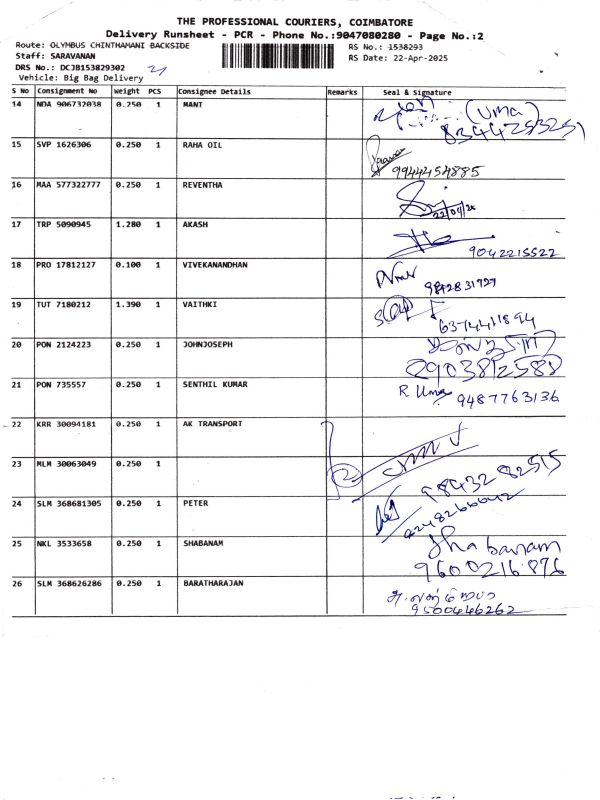 THE PROFESSIONAL COURIERS, COIMBATORE
Delivery Runsheet - PCR - Phone No.:9047080280 - Page No.:2
Route: OLYMBUS CHINTHAMANI BACKSIDE RS No.: 1538293
Staff: SARAVANAN RS Date: 22-Apr-2025
DRS No.: DCJB153829302
Vehicle: Big Bag Delivery
S No Consignment No Weight PCS Consignee Details Remarks Seal & Signature
14 NDA 906732038 0.250 1 MANI (Uma)
15 SVP 1626306 0.250 1 RAHA OIL 9944454885
16 MAA 577322777 0.250 1 REVENTHA 22/04/25
17 TRP 5090945 1.280 1 AKASH 9042215522
18 PRO 17812127 0.100 1 VIVEKANANDHAN 9842831929
19 TUT 7180212 1.390 1 VAITHKI 6374411894
20 PON 2124223 0.250 1 JOHNJOSEPH
21 PON 735557 0.250 1 SENTHIL KUMAR R Uma 9487763136
22 KRR 30094181 0.250 1 AK TRANSPORT
23 MLM 30063049 0.250 1 9843282515
24 SLM 368681305 0.250 1 PETER
25 NKL 3533658 0.250 1 SHABANAM Shabanam
9600216876
26 SLM 368626286 0.250 1 BARATHARAJAN
9500446262